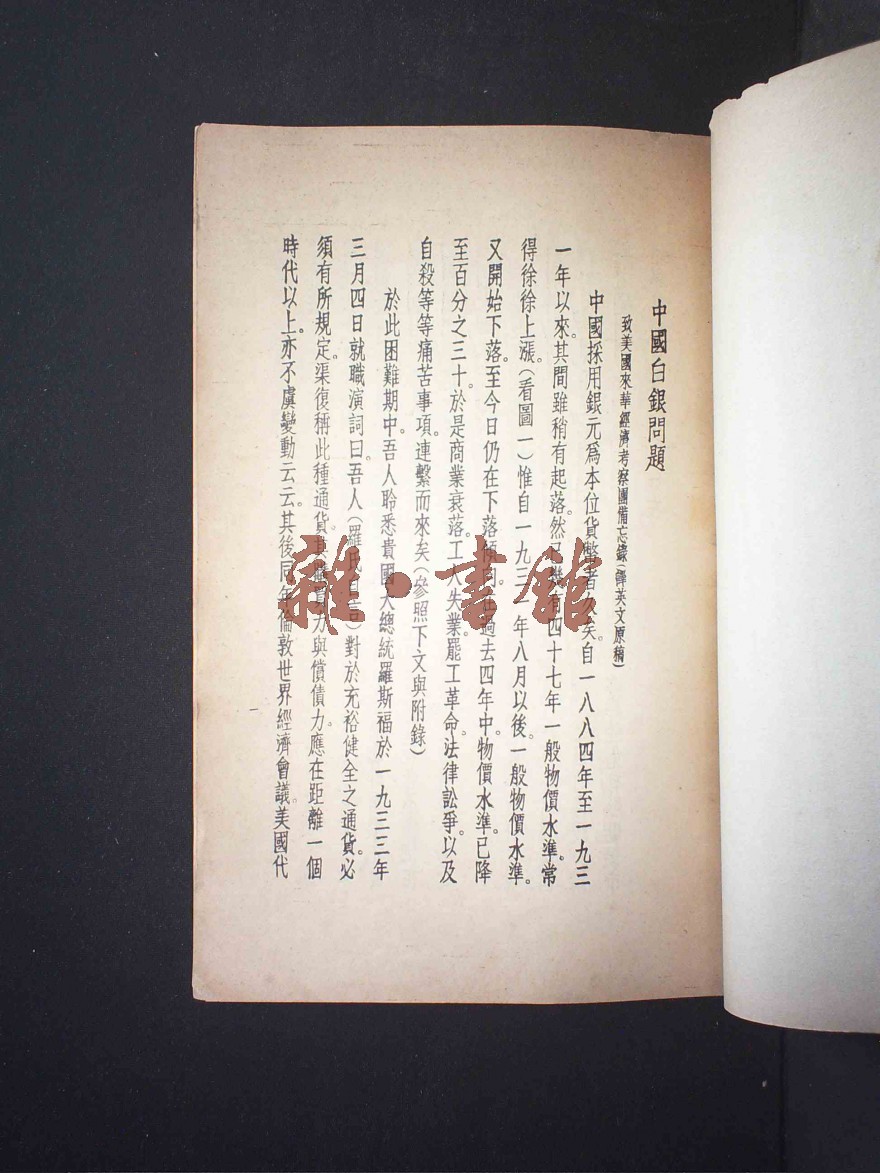 中國白銀問題
致美國來華經濟考察團備忘錄(譯英文原稿)
中國採用銀元爲本位貨幣者久矣。自一八八四年至一九三
一年以來。其間雖稍有起落。然已幾有四十七年一般物價水準。常
得徐徐上漲。(看圖一)惟自一九三一年八月以後。一般物價水準。
又開始下落。至今日仍在下落傾向。在過去四年中。物價水準。已降
至百分之三十。於是商業衰落。工人失業。罷工革命。法律訟爭。以及
自殺等等痛苦事項。連繫而來矣(參照下文與附錄)
於此困難期中。吾人聆悉貴國大總統羅斯福於一九三三年
三月四日就職演詞曰。吾人(羅氏自言)對於充裕健全之通貨。必
須有所規定。渠復稱此種通貨。其購買力與償債力。應在距離一個
時代以上。亦不虞變動云云。其後同年倫敦世界經濟會議。美國代
一
雜·書館